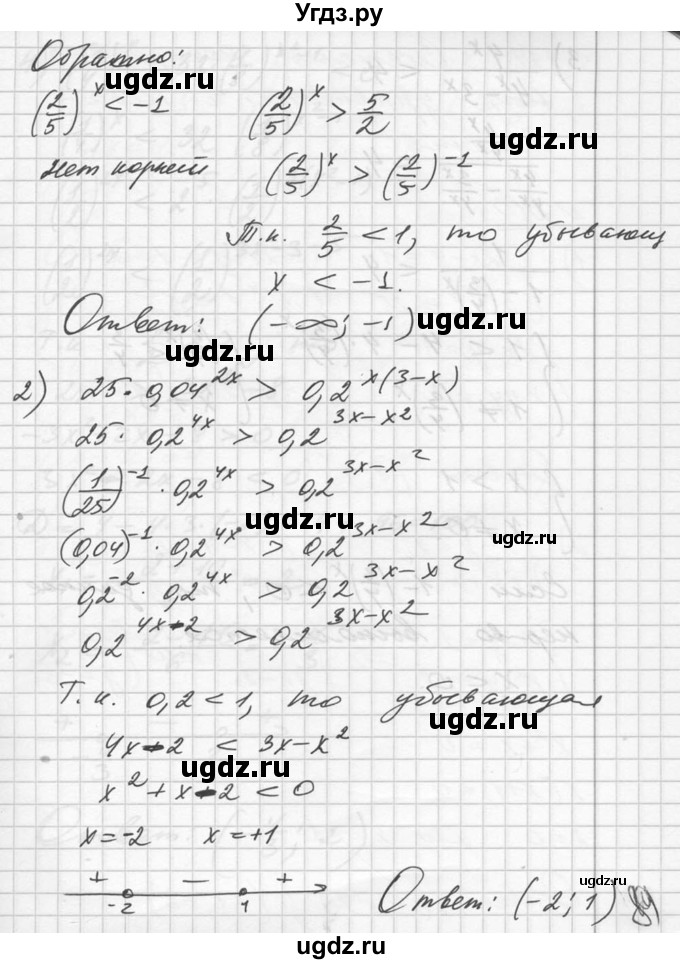 Угдз.ру
Обратно:
(2/5)^x < -1    (2/5)^x > 5/2
Нет корней    (2/5)^x > (2/5)^-1
Т.к. 2/5 < 1, то убывающ
x < -1.
Ответ: (-∞; -1)
2) 25·0,04^2x > 0,2^x(3-x)
25·0,2^4x > 0,2^3x-x²
(1/25)^-1 · 0,2^4x > 0,2^3x-x²
(0,04)^-1 · 0,2^4x > 0,2^3x-x²
0,2^-2 · 0,2^4x > 0,2^3x-x²
0,2^4x-2 > 0,2^3x-x²
Т.к. 0,2 < 1, то убывающая
4x-2 < 3x-x²
x²+x-2 < 0
x=-2    x=+1
+ — +
-2 1
Ответ: (-2; 1)
ugdz.ru
ugdz.ru
ugdz.ru
ugdz.ru
ugdz.ru
ugdz.ru
ugdz.ru
ugdz.ru
ugdz.ru
ugdz.ru
ugdz.ru